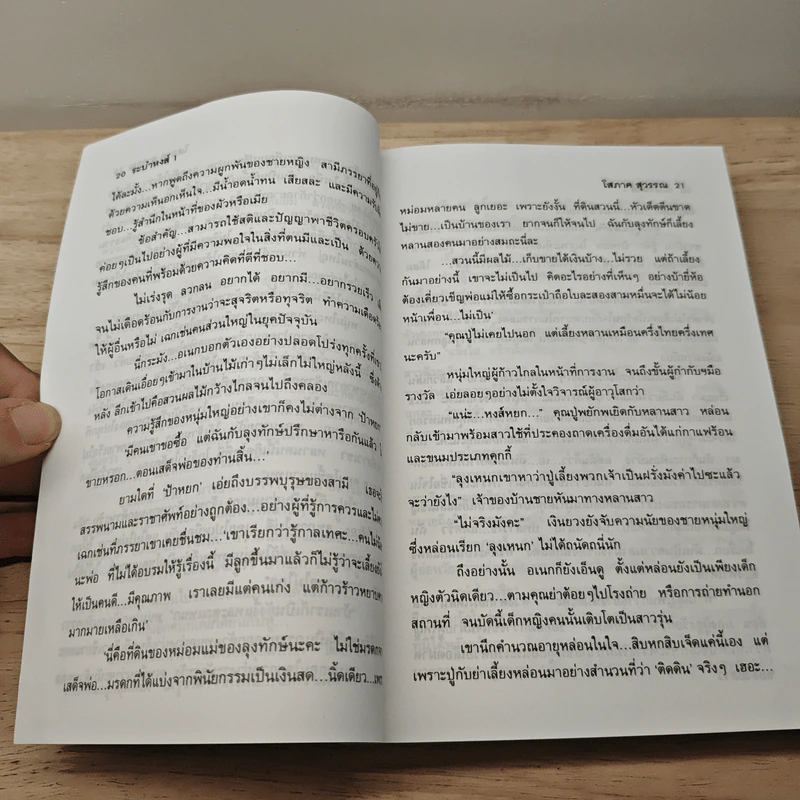 20 ระบำหงส์ 1
ได้ละมั้ง...หากพูดถึงความผูกพันของชายหญิง สามีภรรยาที่อยู่
ด้วยความเห็นอกเห็นใจ...มีน้ำอดน้ำทน เสียสละ และมีความรับผิด
ชอบ...รู้สำนึกในหน้าที่ของผัวหรือเมีย
ข้อสำคัญ...สามารถใช้สติและปัญญาพาชีวิตครอบครัว
ค่อยๆ เป็นไปอย่างผู้ที่มีความพอใจในสิ่งที่ตนมีและเป็น ด้วยความ
รู้สึกของคนที่พร้อมด้วยความคิดที่ดีที่ชอบ...
ไม่เร่งรุด ลวกลน อยากได้ อยากมี...อยากรวยเร็ว
จนไม่เดือดร้อนกับการงานว่าจะสุจริตหรือทุจริต ทำความเดือดร้อน
ให้ผู้อื่นหรือไม่ เฉกเช่นคนส่วนใหญ่ในยุคปัจจุบัน
นี่กระมัง...อเนกบอกตัวเองอย่างปลอดโปร่งทุกครั้งที่
โอกาสเดินเอื่อยๆ เข้ามาในบ้านไม้เก่าๆ ไม่เล็กไม่ใหญ่หลังนี้ ซึ่ง
หลัง ลึกเข้าไปคือสวนผลไม้กว้างไกลจนไปถึงคลอง
ความรู้สึกของหนุ่มใหญ่อย่างเขาก็คงไม่ต่างจาก 'ป้าหยก'
'มีคนเขาขอซื้อ แต่ฉันกับลุงทักษ์ปรึกษาหารือกันแล้ว
ขายหรอก...ตอนเสด็จพ่อของท่านสิ้น...'
ยามใดที่ 'ป้าหยก' เอ่ยถึงบรรพบุรุษของสามี เธอจะ
สรรพนามและราชาศัพท์อย่างถูกต้อง...อย่างผู้ที่รู้การควรและไม่ควร
เฉกเช่นที่ภรรยาเขาเคยชื่นชม...'เขาเรียกว่ารู้กาลเทศะ...คนไม่มี
นะพ่อ ที่ไม่ได้อบรมให้รู้เรื่องนี้ มีลูกขึ้นมาแล้วก็ไม่รู้ว่าจะเลี้ยงยังไง
ให้เป็นคนดี...มีคุณภาพ เราเลยมีแต่คนเก่ง แต่ก้าวร้าวหยาบคาย
มากมายเหลือเกิน'
'นี่คือที่ดินของหม่อมแม่ของลุงทักษ์นะคะ ไม่ใช่มรดก
เสด็จพ่อ...มรดกที่ได้แบ่งจากพินัยกรรมเป็นเงินสด...นิดเดียว...เพราะ
โสภาค สุวรรณ 21
หม่อมหลายคน ลูกเยอะ เพราะยังงั้น ที่ดินสวนนี้...หัวเด็ดตีนขาด
ไม่ขาย...เป็นบ้านของเรา ยากจนก็ให้จนไป ฉันกับลุงทักษ์ก็เลี้ยง
หลานสองคนมาอย่างสมถะนี่ละ
...สวนนี้มีผลไม้...เก็บขายได้เงินบ้าง...ไม่รวย แต่ถ้าเลี้ยง
กันมาอย่างนี้ เขาจะไม่เป็นไป คิดอะไรอย่างที่เห็นๆ อย่างบ้ายี่ห้อ
ต้องเคี่ยวเข็ญพ่อแม่ให้ซื้อกระเป๋าถือใบละสองสามหมื่นจะได้ไม่น้อย
หน้าเพื่อน...ไม่เป็น'
"คุณปู่ไม่เคยไปนอก แต่เลี้ยงหลานเหมือนครึ่งไทยครึ่งเทศ
นะครับ"
หนุ่มใหญ่ผู้ก้าวไกลในหน้าที่การงาน จนถึงชั้นผู้กำกับฯมือ
รางวัล เอ่ยลอยๆ อย่างไม่ตั้งใจวิจารณ์ผู้อาวุโสกว่า
"แน่ะ...หงส์หยก..." คุณปู่พยักพเยิดกับหลานสาว หล่อน
กลับเข้ามาพร้อมสาวใช้ที่ประคองถาดเครื่องดื่มอันได้แก่กาแฟร้อน
และขนมประเภทคุกกี้
"ลุงเหนกเขาหาว่าปู่เลี้ยงพวกเจ้าเป็นฝรั่งมังค่าไปซะแล้ว
จะว่ายังไง" เจ้าของบ้านชายหันมาทางหลานสาว
"ไม่จริงมังคะ" เงินยวงยังจับความนัยของชายหนุ่มใหญ่
ซึ่งหล่อนเรียก 'ลุงเหนก' ไม่ได้ถนัดถนี่นัก
ถึงอย่างนั้น อเนกก็ยังเอ็นดู ตั้งแต่หล่อนยังเป็นเพียงเด็ก
หญิงตัวนิดเดียว...ตามคุณย่าต้อยๆ ไปโรงถ่าย หรือการถ่ายทำนอก
สถานที่ จนบัดนี้เด็กหญิงคนนั้นเติบโตเป็นสาวรุ่น
เขานึกคำนวณอายุหล่อนในใจ...สิบหกสิบเจ็ดแค่นี้เอง แต่
เพราะปู่กับย่าเลี้ยงหล่อนมาอย่างสำนวนที่ว่า 'ติดดิน' จริงๆ เฮอะ...